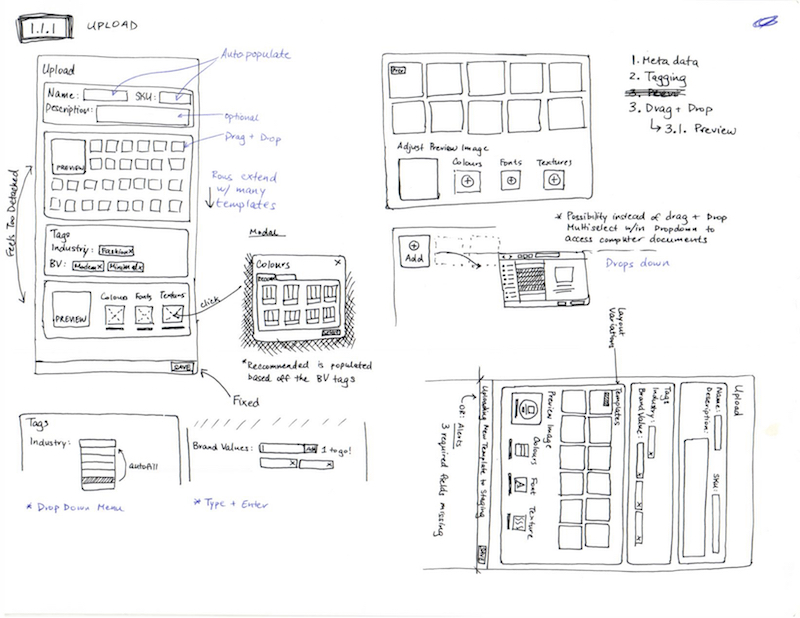 1.1.1 UPLOAD
Upload
Name: SKU:
Description:
Autopopulate
optional
Drag + Drop
PREVIEW
Rows extend
w/ many
templates
Feels Too Detached
Tags
Industry: Fashion x
BV: Modern x Minimal x
PREVIEW
Colours Fonts Textures
click
SAVE
Fixed
Modal
Colours x
*Reccomended is populated
based off the BV tags
Tags
Industry:
autofill
* Drop Down Menu
Brand Values: Add 1 to go!
x x
* Type + Enter
Prev
Adjust Preview Image
Colours Fonts Textures
1. Meta data
2. Tagging
3. Drag + Drop
↳ 3.1. Preview
* Possibility instead of drag + Drop
Multiselect w/in Dropdown to
access computer documents
Add
Drops down
Layout
Variations
Upload
Name: SKU:
Description:
Tags
Industry:
Brand Value:
Templates
Preview Image
Colours Font Texture
A
Uploading New Template to Staging
SAVE
OR: Alerts
3 required fields missing